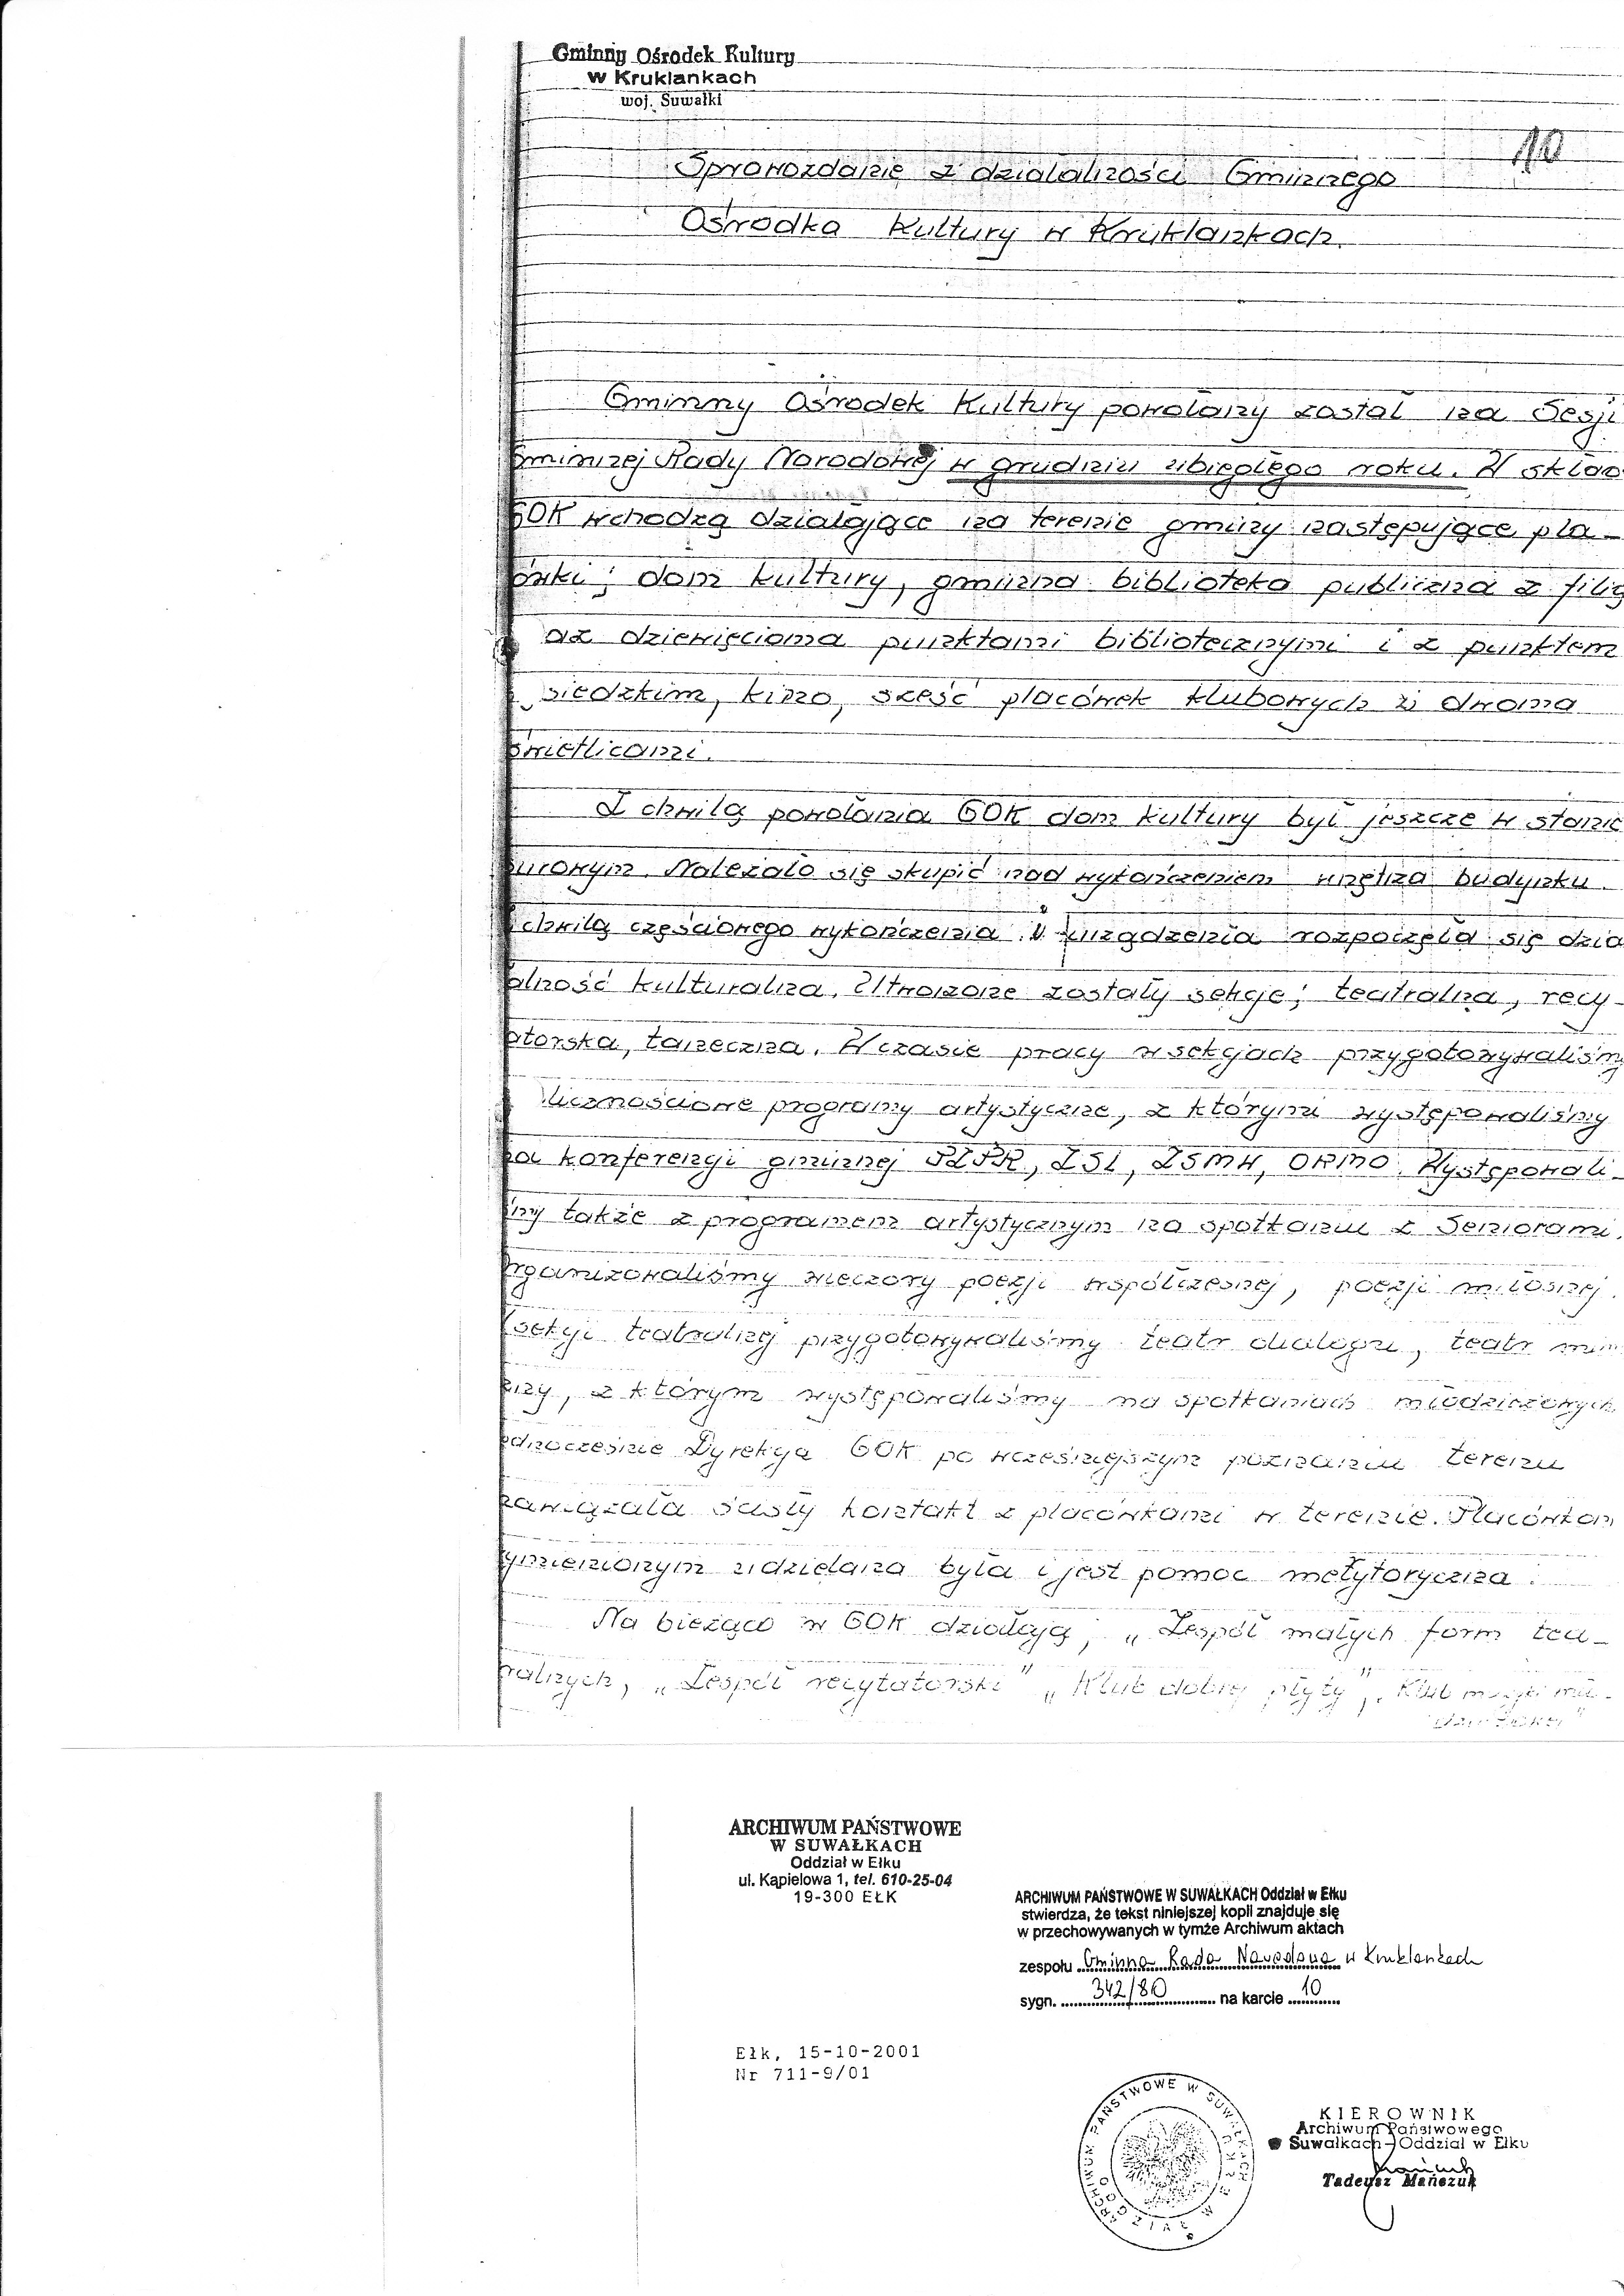 Gminny Ośrodek Kultury
w Kruklankach
woj. Suwałki
10
Sprawozdanie z działalności Gminnego
Ośrodka Kultury w Kruklankach.
Gminny Ośrodek Kultury powołany został na Sesji
Gminnej Rady Narodowej w grudniu ubiegłego roku. W skład
GOK wchodzą działające na terenie gminy następujące pla-
ówki; dom kultury, gminna biblioteka publiczna z filią
az dziewięcioma punktami bibliotecznymi i z punktem
siedzkim, kino, sześć placówek klubowych z dwoma
świetlicami.
Z chwilą powołania GOK dom kultury był jeszcze w stanie
surowym. Należało się skupić nad wykończeniem wnętrza budynku.
chwilą częściowego wykończenia i urządzenia rozpoczęła się dzia
alność kulturalna. Utworzone zostały sekcje; teatralna, recy-
atorska, taneczna. W czasie pracy w sekcjach przygotowywaliśmy
licznościowe programy artystyczne, z którymi występowaliśmy
na konferencji gminnej PZPR, ZSL, ZSMW, ORMO. Występowali-
śmy także z programem artystycznym na spotkaniu z Seniorami.
rganizowaliśmy wieczory poezji współczesnej, poezji miłosnej.
sekcji teatralnej przygotowywaliśmy teatr dialogu, teatr
z którym występowaliśmy na spotkaniach młodzieżowych
ednocześnie Dyrekcja GOK po wcześniejszym poznaniu terenu
nawiązała ścisły kontakt z placówkami w terenie. Placówkom
ymienionym udzielana była i jest pomoc metytoryczna.
Na bieżąco w GOK działają; „Zespół małych form tea-
ralnych, „Zespół recytatorski" „Klub dobrej płyty", „Klub
ARCHIWUM PAŃSTWOWE
W SUWAŁKACH
Oddział w Ełku
ul. Kąpielowa 1, tel. 610-25-04
19-300 EŁK
ARCHIWUM PAŃSTWOWE W SUWAŁKACH Oddział w Ełku
stwierdza, że tekst niniejszej kopii znajduje się
w przechowywanych w tymże Archiwum aktach
zespołu Gminna Rada Narodowa w Kruklankach
sygn. 342/80 na karcie 10
Ełk, 15-10-2001
Nr 711-9/01
ARCHIWUM PAŃSTWOWE W SUWAŁKACH
ODDZIAŁ W EŁKU
KIEROWNIK
Archiwum Państwowego
w Suwałkach - Oddział w Ełku
Tadeusz Mańczuk